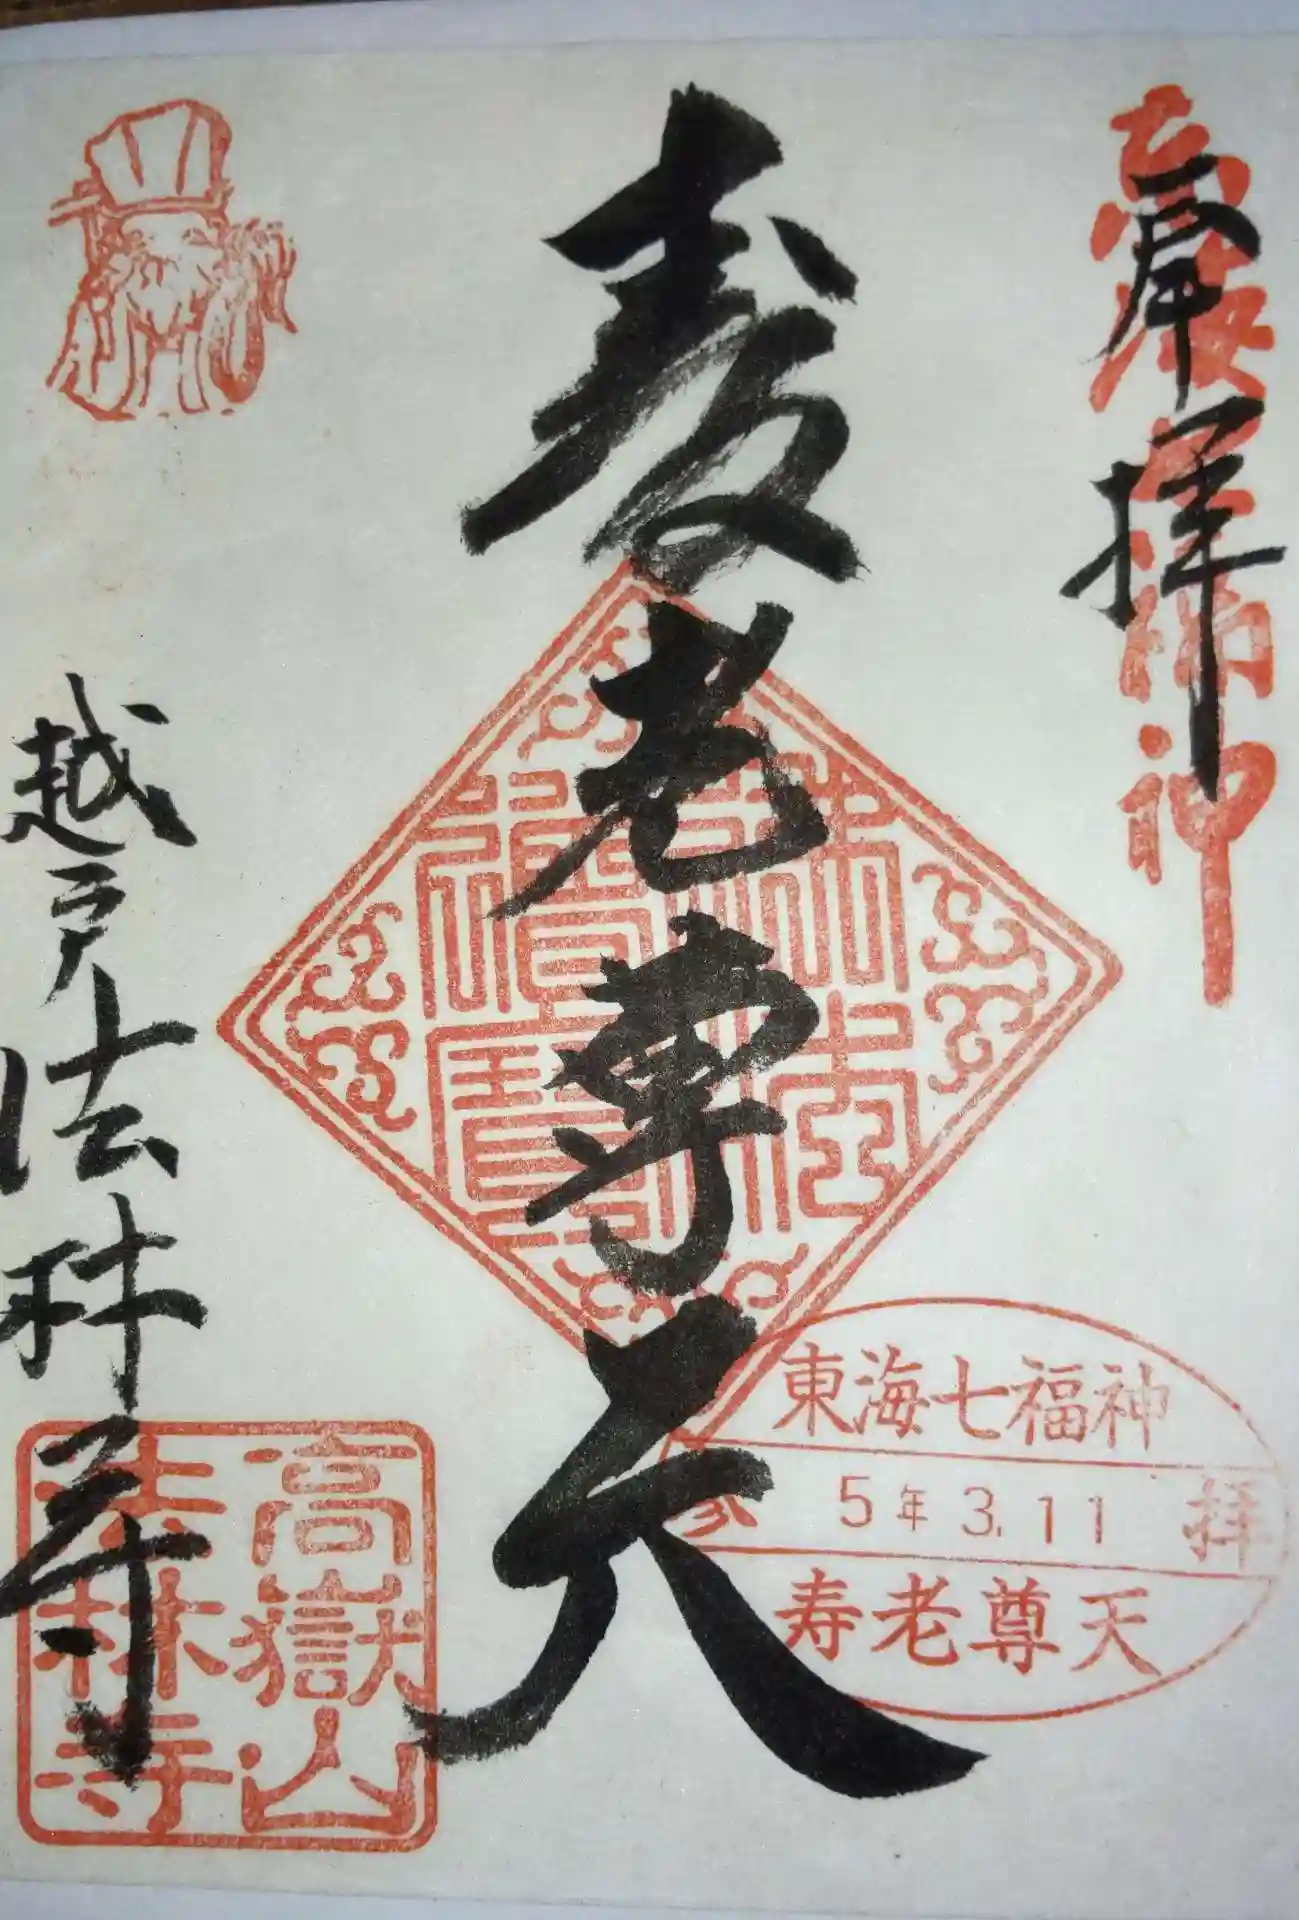 奉拝
東海七福神
寿老尊天
佛法僧寶
東海七福神
参 5年3.11 拝
寿老尊天
越戸法林寺
高嶽山
法林寺